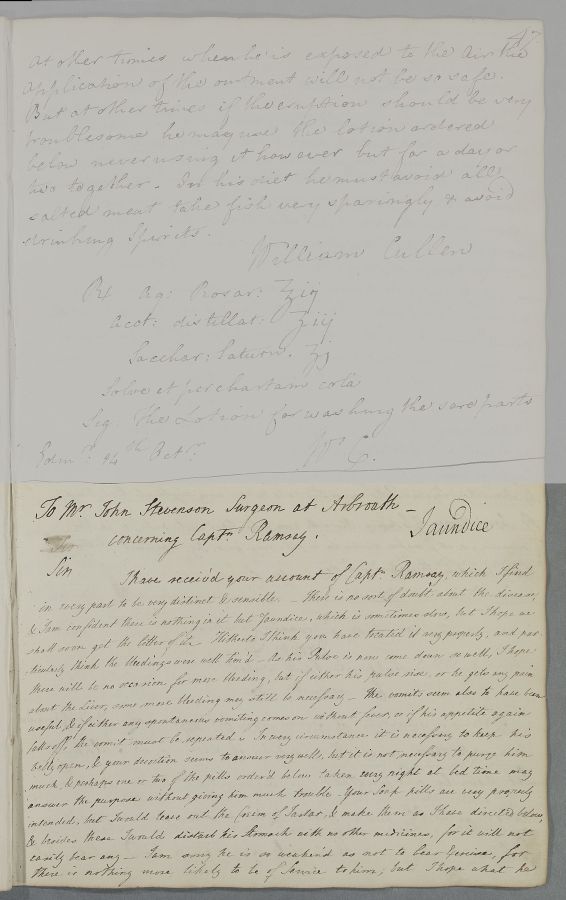 47
at other times when he is exposed to the Air the
application of the ointment will not be so safe.
But at other times if the eruption should be very
troublesome he may use the lotion ordered
below never using it however but for a day or
two together. In his diet he must avoid all
salted meat take fish very sparingly & avoid
drinking Spirits.
William Cullen
Rx Aq: Rosar: ℥ij
Acet: distillat: ℥iij
Sacchar: Saturn. ʒj
Solve et per chartam cola
Sig. The Lotion for washing the sore parts
Edinr: 24th Octr.
Wm C.
To Mr. John Stevenson Surgeon at Arbroath –
concerning Captn Ramsay.
Jaundice
Sir
I have receiv'd your account of Captn. Ramsay, which I find
in every part to be very distinct & sensible. – There is no sort of doubt about the disease,
& I am confident there is nothing in it but Jaundice, which is sometimes slow, but I hope we
shall soon get the better of it – Hitherto I think you have treated it very properly, and par-
ticularly think the bleedings were well tim'd – As his Pulse is now come down so well, I hope
there will be no occasion for more bleeding, but if either his pulse rise, or he gets any pain
about the Liver, some more bleeding may still be necessary – The vomits seem also to have been
useful, & if either any spontaneous vomiting comes on without fever, or if his appetite again
falls off, the vomit must be repeated – In every circumstance it is necessary to keep his
belly open, & your decoction seems to answer very well, but it is not necessary to purge him
much, & perhaps one or two of the pills order'd below taken every night at bed time may
answer the purpose without giving him much trouble – Your Soap pills are very properly
intended, but I would leave out the Cream of Tartar, & make them as I have directed below,
& besides these I would disturb his Stomach with no other medicines, for it will not
easily bear any – I am sorry he is so weaken'd as not to bear Exercise, for
there is nothing more likely to be of Service to him; but I hope what he